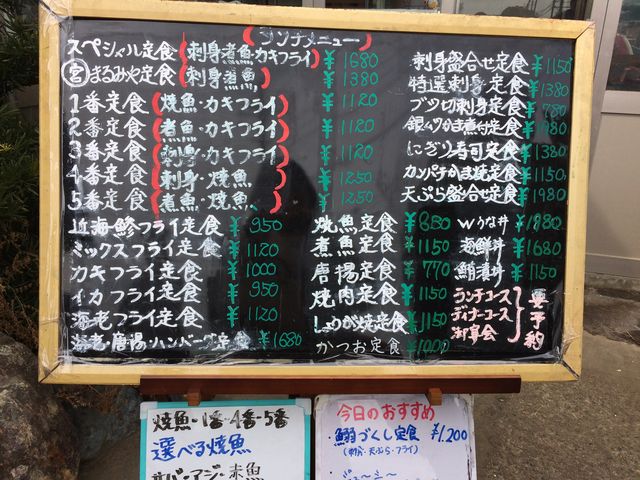 ランチメニュー
スペシャル定食(刺身・煮魚・カキフライ) ¥1680
宮まるみや定食(刺身煮魚) ¥1380
1番定食(焼魚・カキフライ) ¥1120
2番定食(煮魚・カキフライ) ¥1120
3番定食(刺身・カキフライ) ¥1120
4番定食(刺身・焼魚) ¥1250
5番定食(煮魚・焼魚) ¥1250
近海・鯵フライ定食 ¥950
ミックスフライ定食 ¥1120
カキフライ定食 ¥1000
イカフライ定食 ¥950
海老フライ定食 ¥1120
海老・唐揚・ハンバーグ定食 ¥1680
焼魚定食 ¥850
煮魚定食 ¥1150
唐揚定食 ¥770
焼肉定食 ¥1150
しょうが焼定食 ¥1150
かつお定食 ¥1000
刺身盛合せ定食 ¥1150
特選刺身定食 ¥1380
ブツ切刺身定食 ¥780
銀ムツかま煮付定食
にぎり寿司定食 ¥1380
カンパチかま焼定食 ¥1150
天ぷら盛合せ定食 ¥1980
Wうな丼 ¥1880
海鮮丼 ¥1680
鮪漬丼 ¥1150
ランチコース
ディナーコース
御宴会
要予約
焼魚・1番・4番・5番
選べる焼魚
サバ・アジ・赤魚
今日のおすすめ
・鰯づくし定食 ¥1,200
(刺身・天ぷら・フライ)